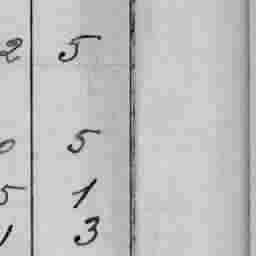 2 5
0 5
5 1
1 3